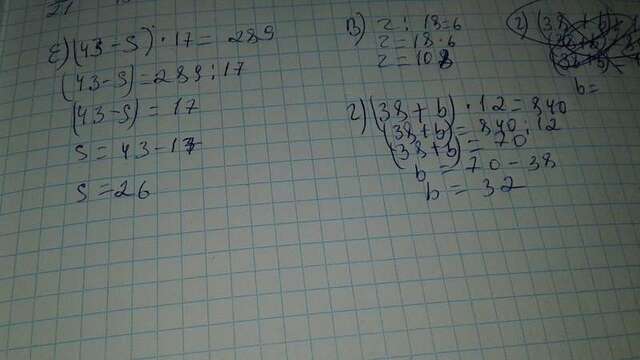 е) (43-s) · 17 = 289
(43-s) = 289 : 17
(43-s) = 17
s = 43-17
s = 26
в) z : 18 = 6
z = 18 · 6
z = 108
г) (38 + b) · 12 = 840
(38+b) = 840 : 12
(38+b) = 70
b = 70 - 38
b = 32
г) (38 + b)
b =